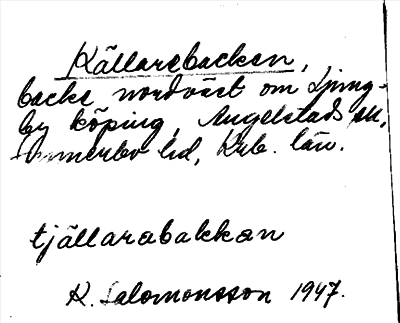 Källarebacken,
backe nordväst om Ljung-
by köping, Angelstads sn,
Sunnerbo hd, Krb. län.
tjällarabakkan
K. Salomonsson 1947.